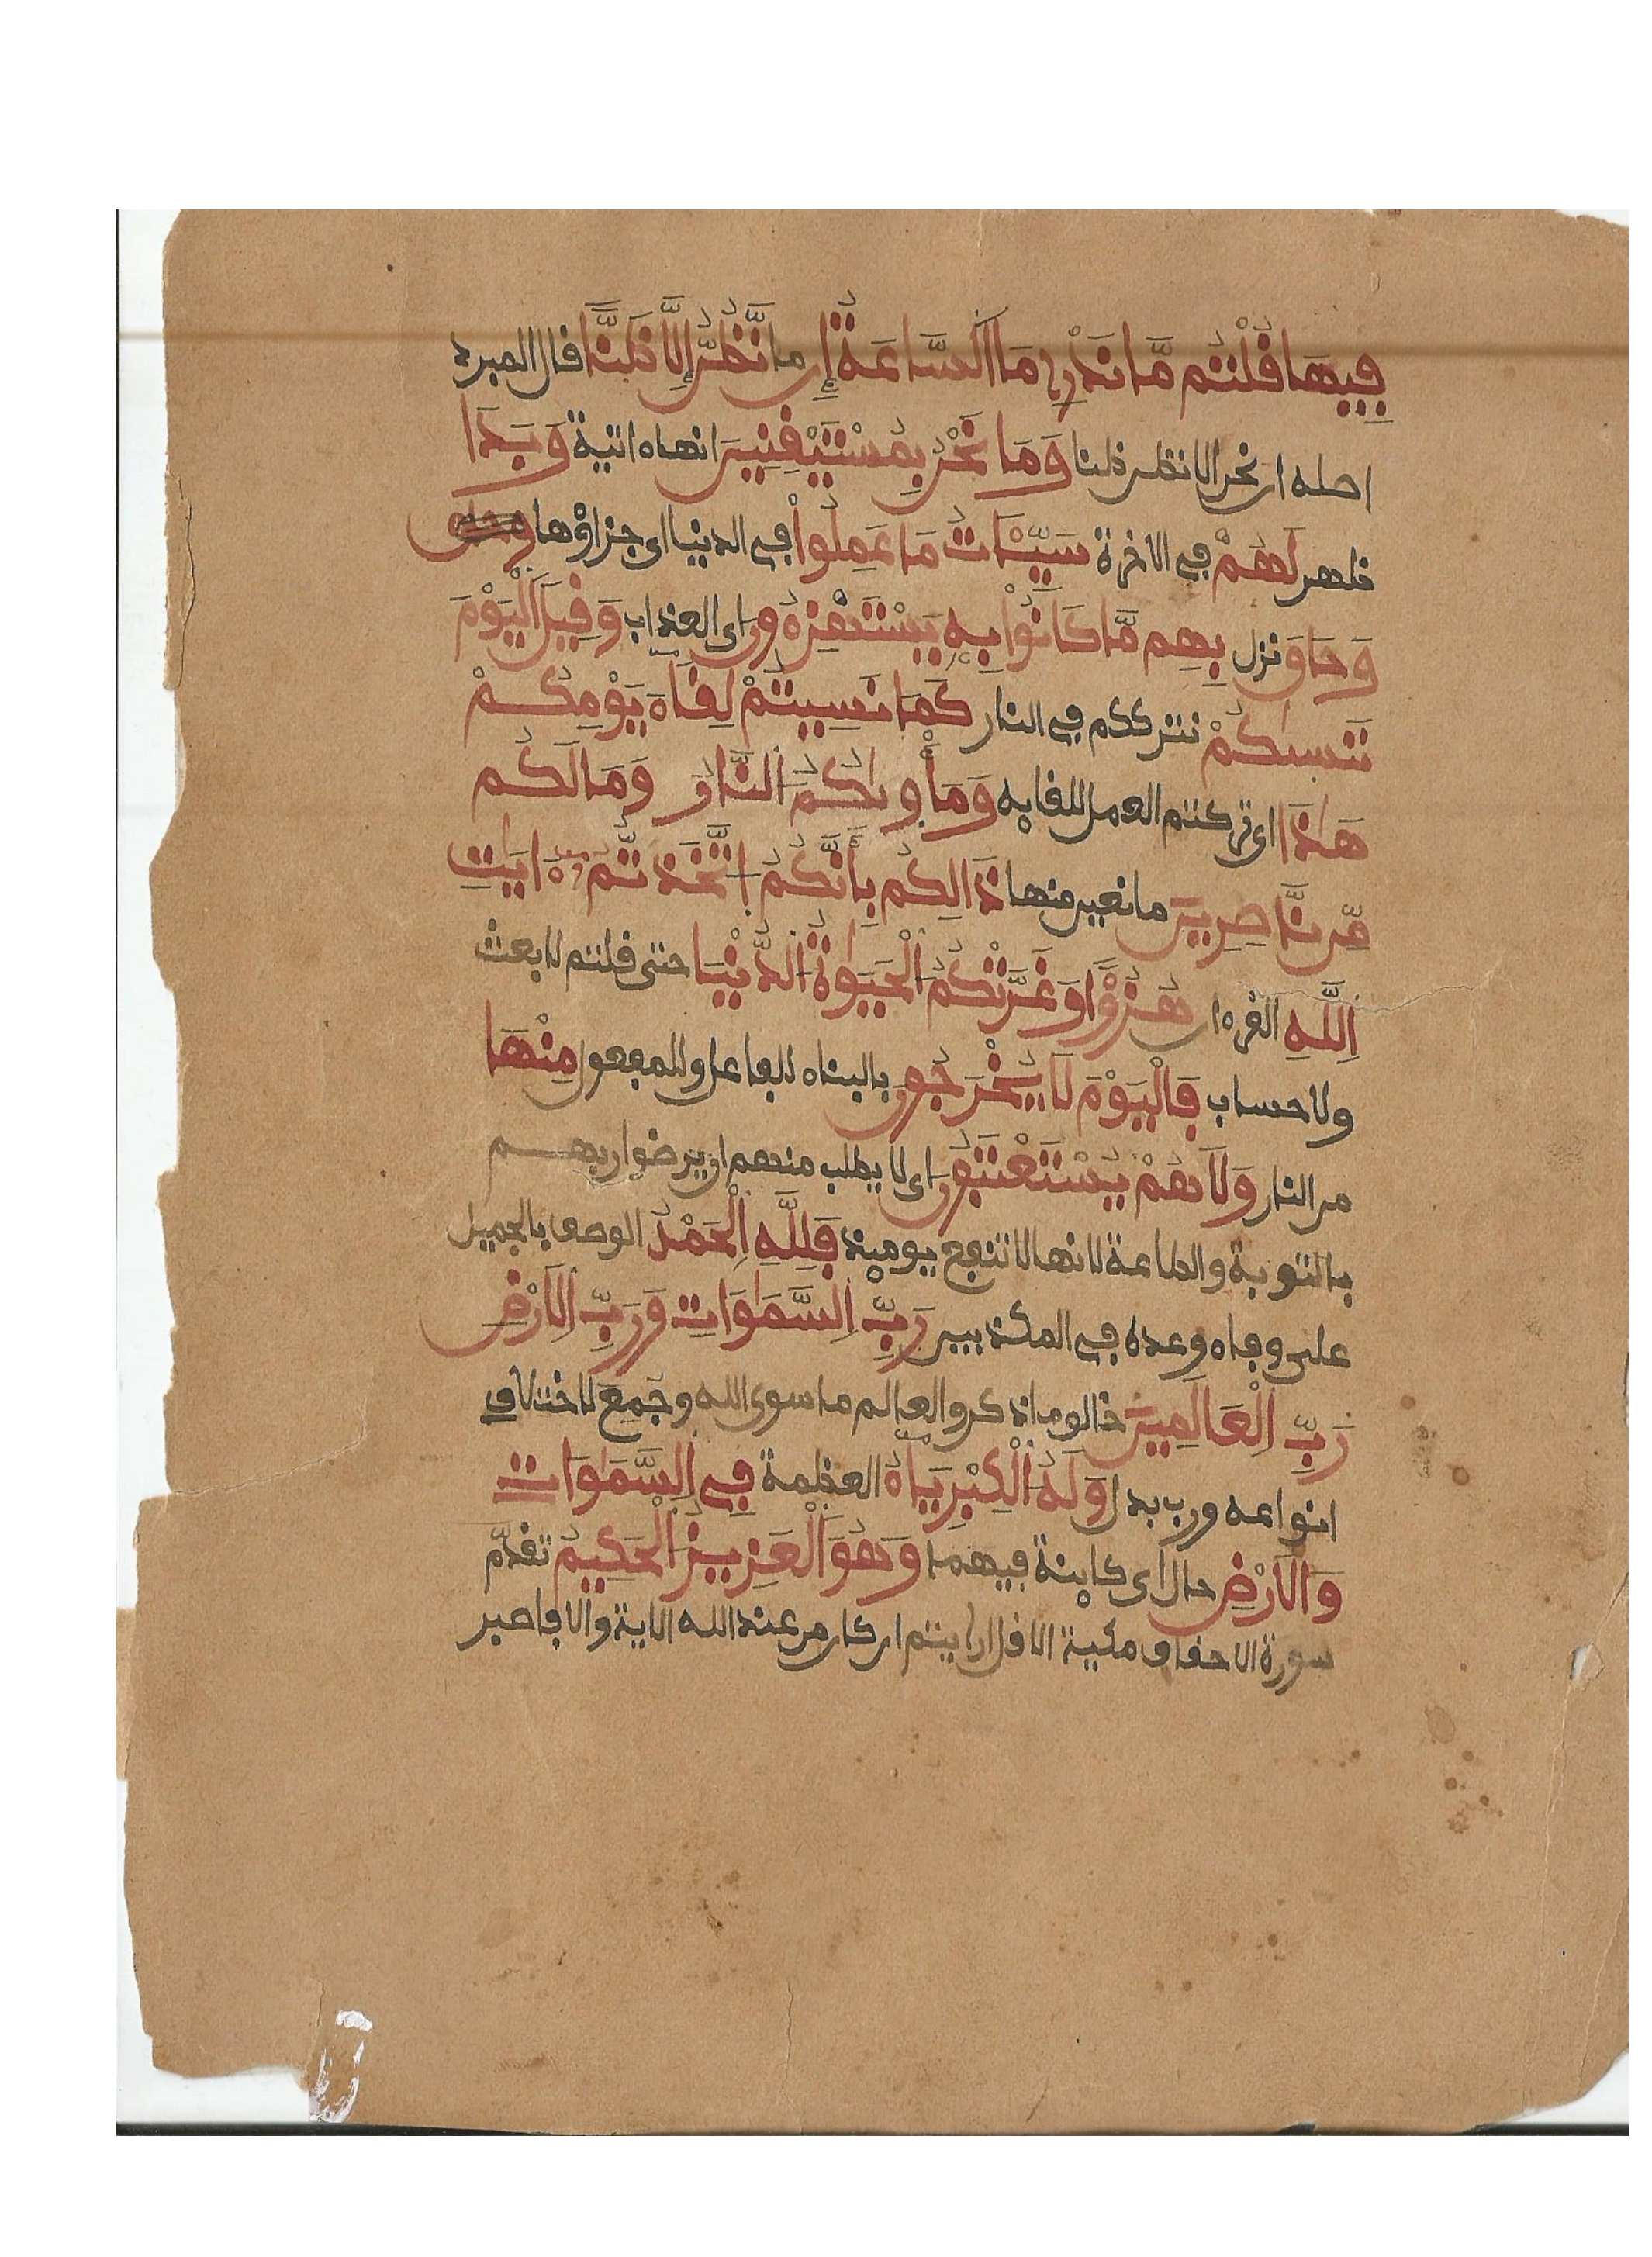 فِيهَا قُلْتُم مَّا نَدْرِے مَا اَ۬لسَّاعَةُ إِن ما نَّظُنُّ إِلَّا ظَنّاً قال المبرد
اصله ان نحن الا نظن ظنا وَمَا نَحْنُ بِمُسْتَيْقِنِينَ انها ءاتية وَبَدَا
ظهر لَهُمْ في الاخرة سَيِّـَٔاتُ مَا عَمِلُواْ في الدنيا اى جزاؤها
وَحَاقَ نزل بِهِم مَّا كَانُواْ بِهِۦ يَسْتَهْزِءُونَ اى العذاب وَقِيلَ اَ۬لْيَوْمَ
نَنسىٰكُمْ نترككم في النار كَمَا نَسِيتُمْ لِقَآءَ يَوْمِكُمْ
هَٰذَا اى تركتم العمل للقايه وَمَأْوىٰكُمُ اُ۬لنَّارُ وَمَا لَكُم
مِّن نَّٰصِرِينَ مانعين منها ذَٰلِكُم بِأَنَّكُمُ اُ۪تَّخَذتُّمُۥٓ ءَايَٰتِ
اِ۬للَّهِ القرءان هُزُؤاً وَغَرَّتْكُمُ اُ۬لْحَيَوٰةُ اُ۬لدُّنْيَا حتى قلتم لا بعث
ولا حساب فَالْيَوْمَ لَا يُخْرَجُونَ بالبناء للفاعل وللمفعول مِنْهَا
من النار وَلَا هُمْ يُسْتَعْتَبُونَ اى لا يطلب منهم ان يرضوا ربهم
بالتوبة والطاعة لانها لا تنفع يوميذ فَلِلهِ اِ۬لْحَمْدُ الوصف بالجميل
على وفاء وعده في المكذبين رَبِّ اِ۬لسَّمَٰوَٰتِ وَرَبِّ اِ۬لَارْضِ
رَبِّ اِ۬لْعَٰلَمِينَ خالق ما ذكر والعالم ما سوى الله وجمع لاختلاف
انواعه ورب بدل وَلَهُ اُ۬لْكِبْرِيَآءُ العظمة فِے اِ۬لسَّمَٰوَٰتِ
وَالَارْضِ حال اى كاينة فيهما وَهُوَ اَ۬لْعَزِيزُ اُ۬لْحَكِيمُ تقدّم
سورة الاحقاف مكية الا قل ارايتم ان كان من عند الله الاية والا فاصبر